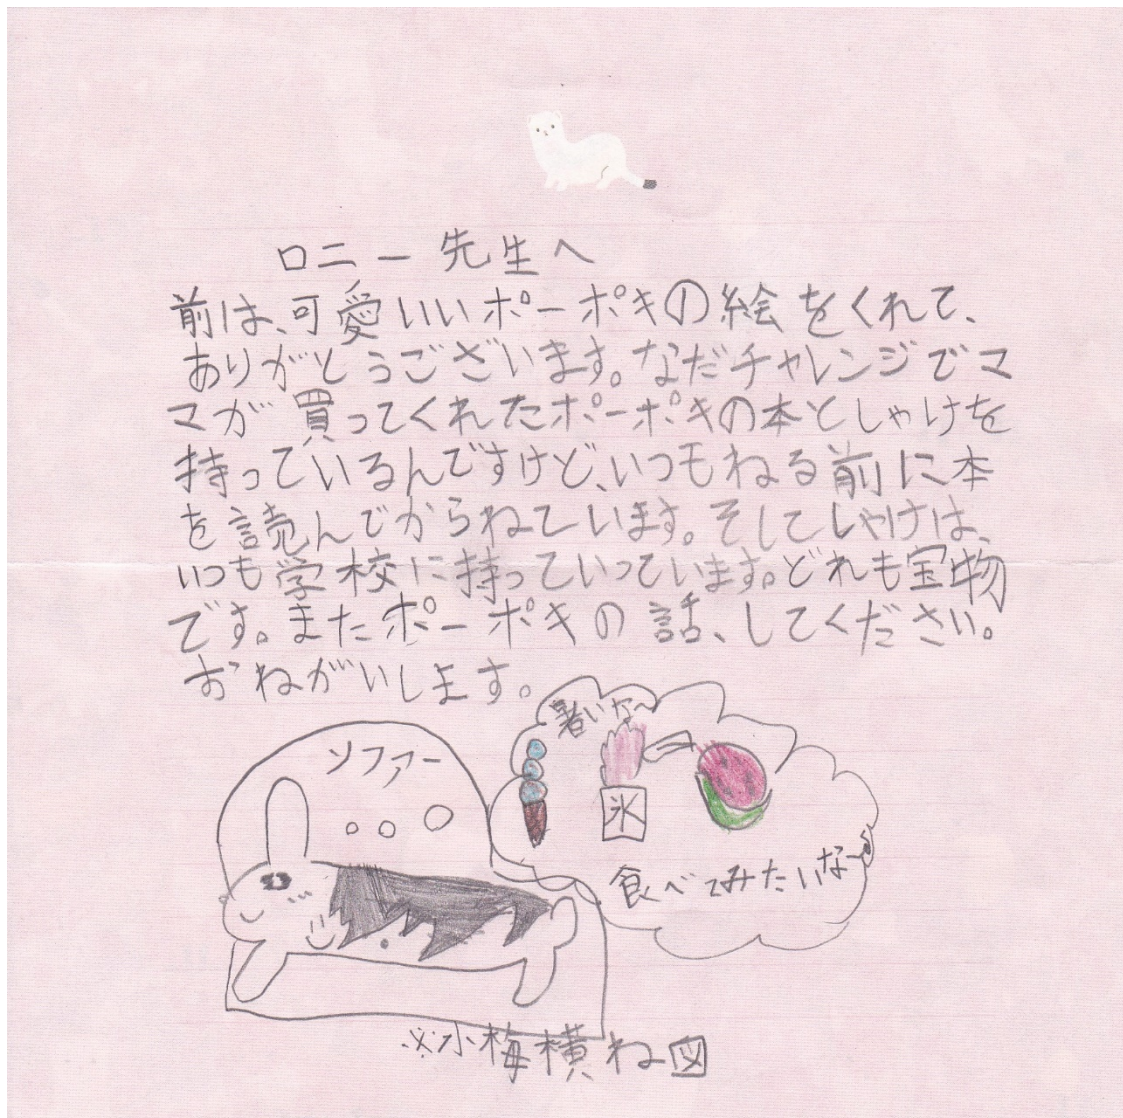 ロニー先生へ
前は、可愛いいポーポキの絵をくれて、
ありがとうございます。なだチャレンジでマ
マが買ってくれたポーポキの本としゃけを
持っているんですけど、いつもねる前に本
を読んでからねています。そしてしゃけは、
いつも学校に持っていっています。どれも宝物
です。またポーポキの話、してください。
おねがいします。
暑いな〜
ソファー
氷
食べてみたいな〜
※小梅横ね図